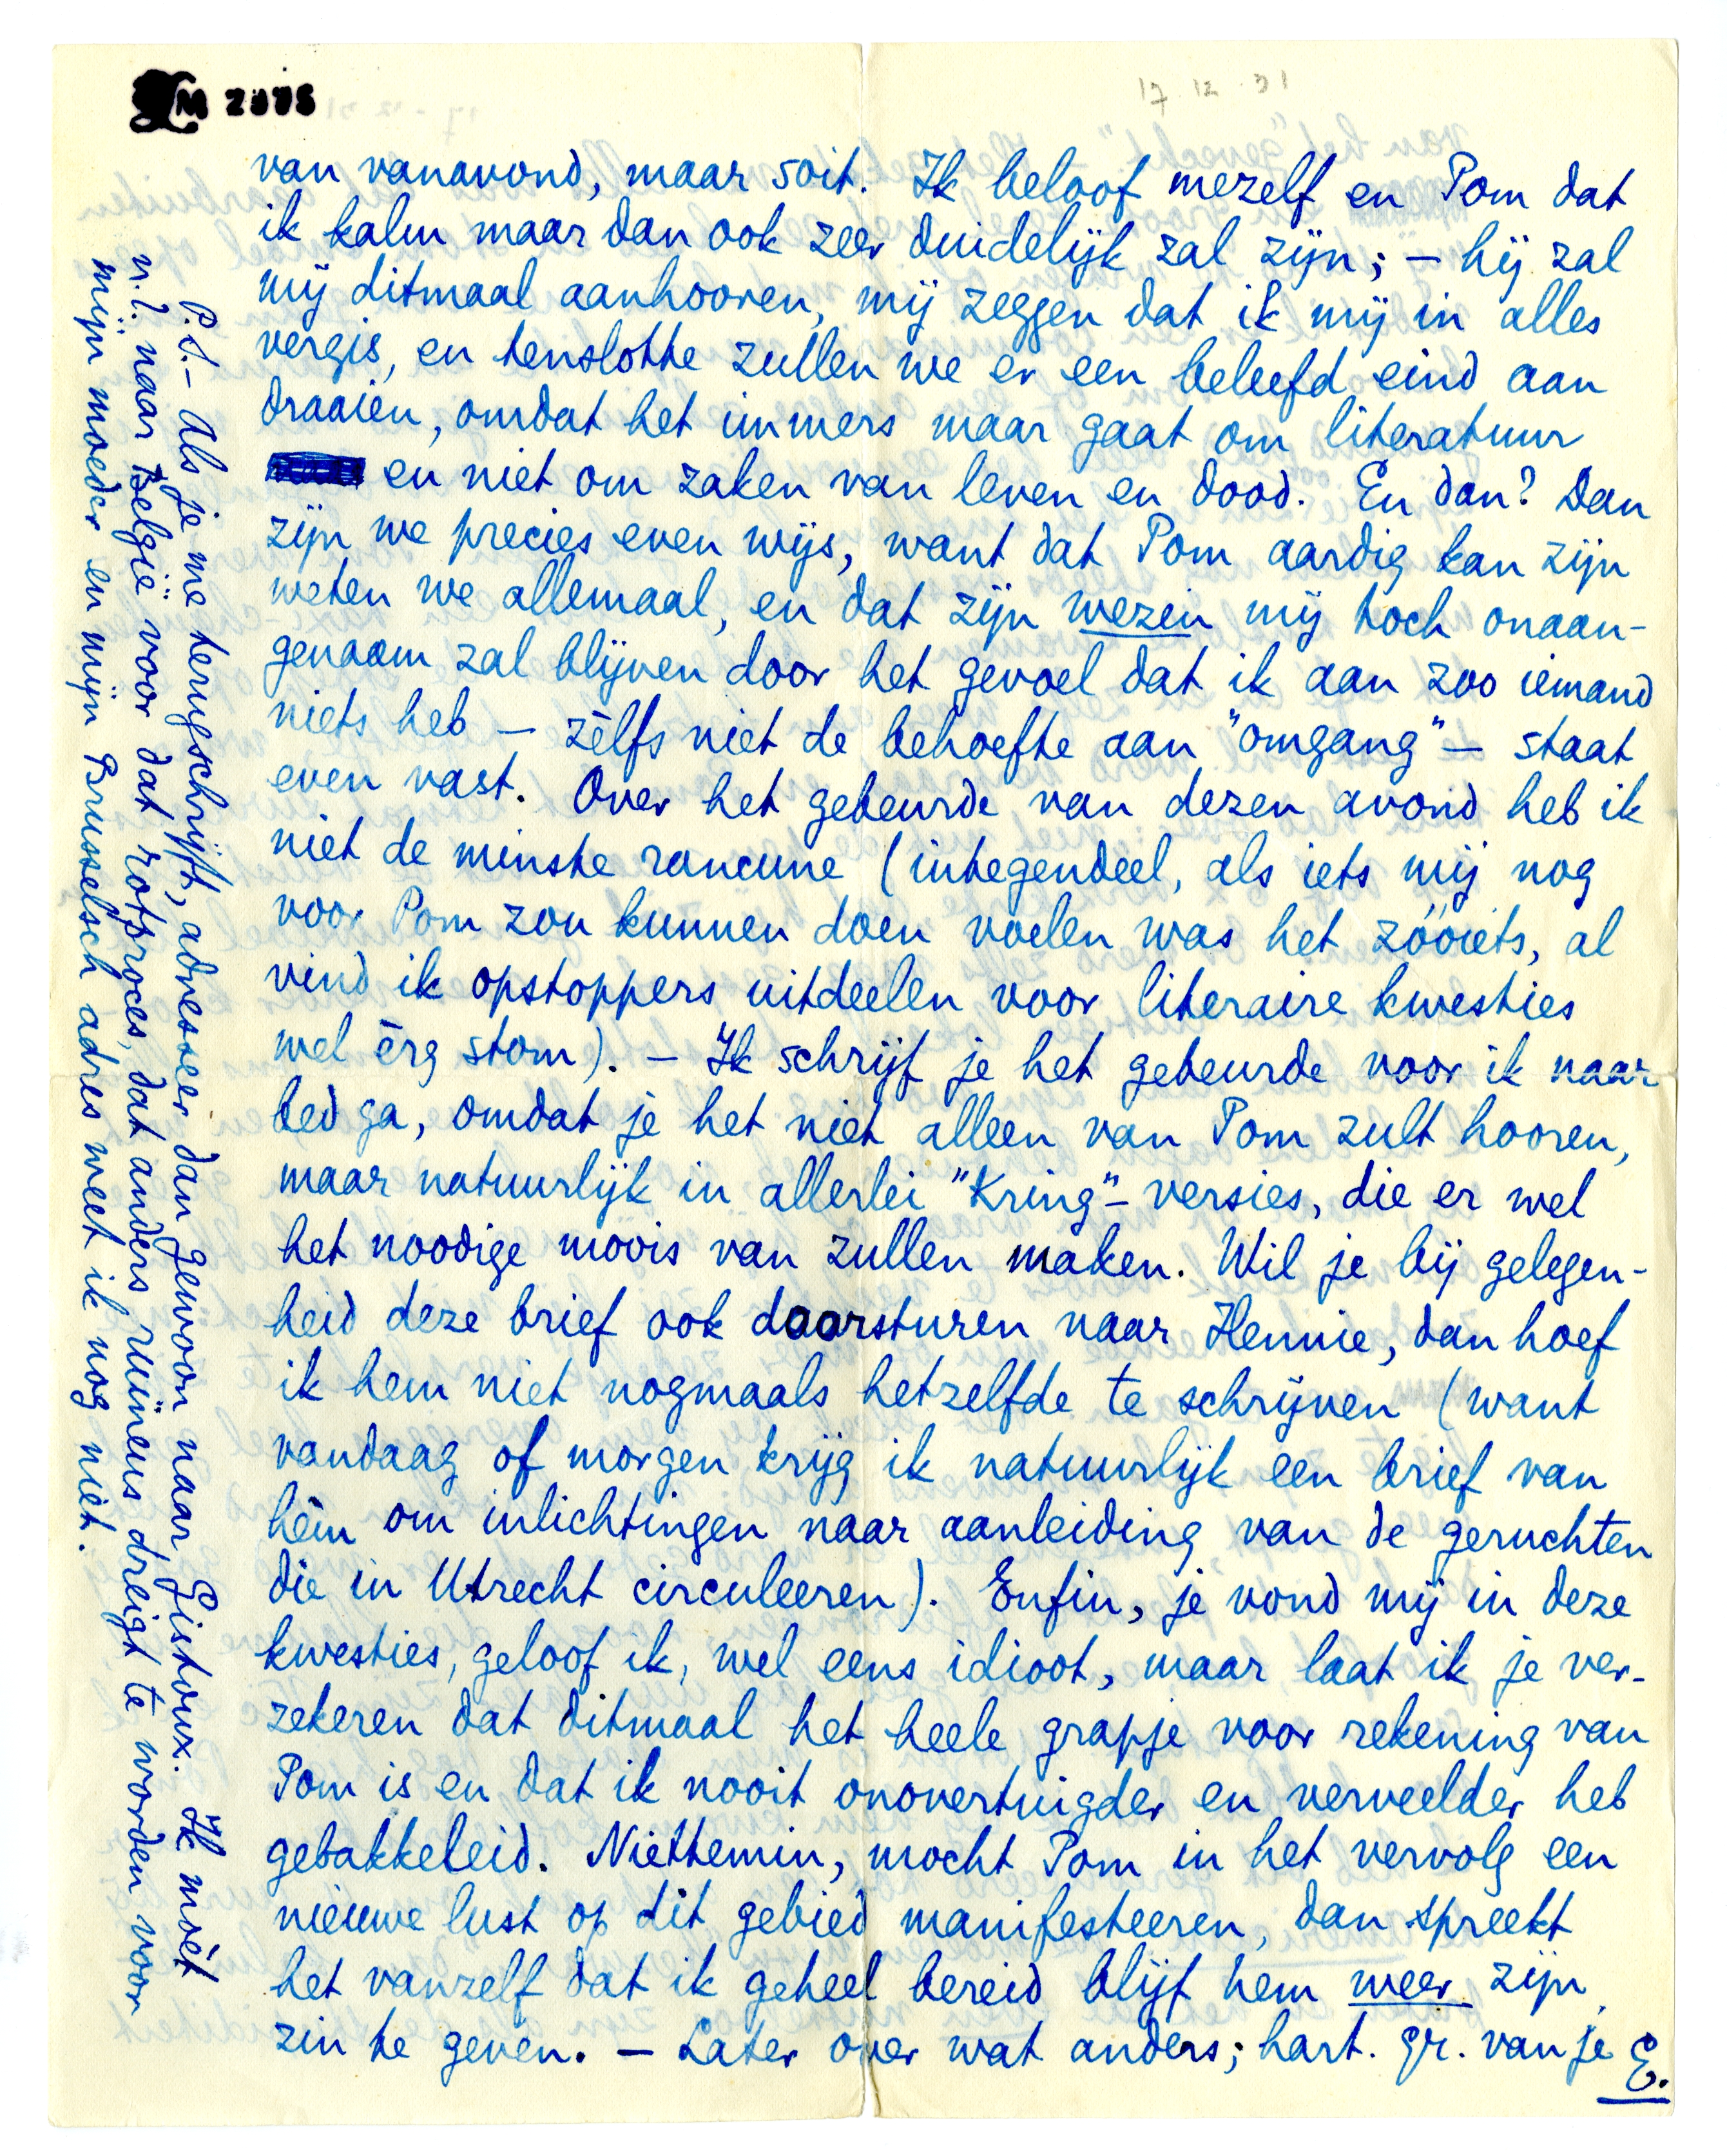 M 2775
17 12 31
van vanavond, maar soit. Ik beloof mezelf en Pom dat
ik kalm maar dan ook zeer duidelijk zal zijn; – hij zal
mij ditmaal aanhooren, mij zeggen dat ik mij in alles
vergis, en tenslotte zullen we er een beleefd eind aan
draaien, omdat het immers maar gaat om literatuur
en niet om zaken van leven en dood. En dan? Dan
zijn we precies even wijs, want dat Pom aardig kan zijn
weten we allemaal, en dat zijn wezen mij toch onaan-
genaam zal blijven door het gevoel dat ik aan zoo iemand
niets heb – zèlfs niet de behoefte aan "omgang" – staat
even vast. Over het gebeurde van dezen avond heb ik
niet de minste rancune (integendeel, als iets mij nog
voor Pom zou kunnen doen voelen was het zóóiets, al
vind ik opstoppers uitdeelen voor literaire kwesties
wel èrg stom). – Ik schrijf je het gebeurde voor ik naar
bed ga, omdat je het niet alleen van Pom zult hooren,
maar natuurlijk in allerlei "Kring"-versies, die er wel
het noodige moois van zullen maken. Wil je bij gelegen-
heid deze brief ook doorsturen naar Hennie, dan hoef
ik hem niet nogmaals hetzelfde te schrijven (want
vandaag of morgen krijg ik natuurlijk een brief van
hèm om inlichtingen naar aanleiding van de geruchten
die in Utrecht circuleeren). Enfin, je vond mij in deze
kwesties, geloof ik, wel eens idioot, maar laat ik je ver-
zekeren dat ditmaal het heele grapje voor rekening van
Pom is en dat ik nooit onovertuigder en verveelder heb
gebakkeleid. Niettemin, mocht Pom in het vervolg een
nieuwe lust op dit gebied manifesteeren, dan spreekt
het vanzelf dat ik geheel bereid blijf hem weer zijn
zin te geven. – Later over wat anders; hart. gr. van je E.
P.S. – Als je me terugschrijft, adresseer dan gewoon naar Gistoux. Ik moèt
n.l. naar België voor dat rotproces, dat anders ruïneus dreigt te worden voor
mijn moeder en mijn Brusselsch adres weet ik nog niet.